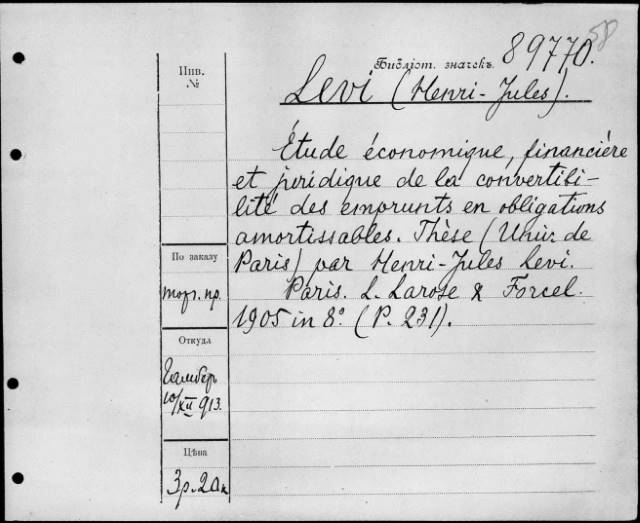 58
Библіот. значекъ 89770.
Levi (Henri-Jules).
Étude économique, financière
et juridique de la convertibi-
lité des emprunts en obligations
amortissables. Thèse (Univ. de
Paris) par Henri-Jules Levi.
Paris. L. Larose & Forcel.
1905 in 8° (P. 231).
Инв.
№
По заказу
торг. пр.
Откуда
10/XII 913.
Цѣна
3р. 20к